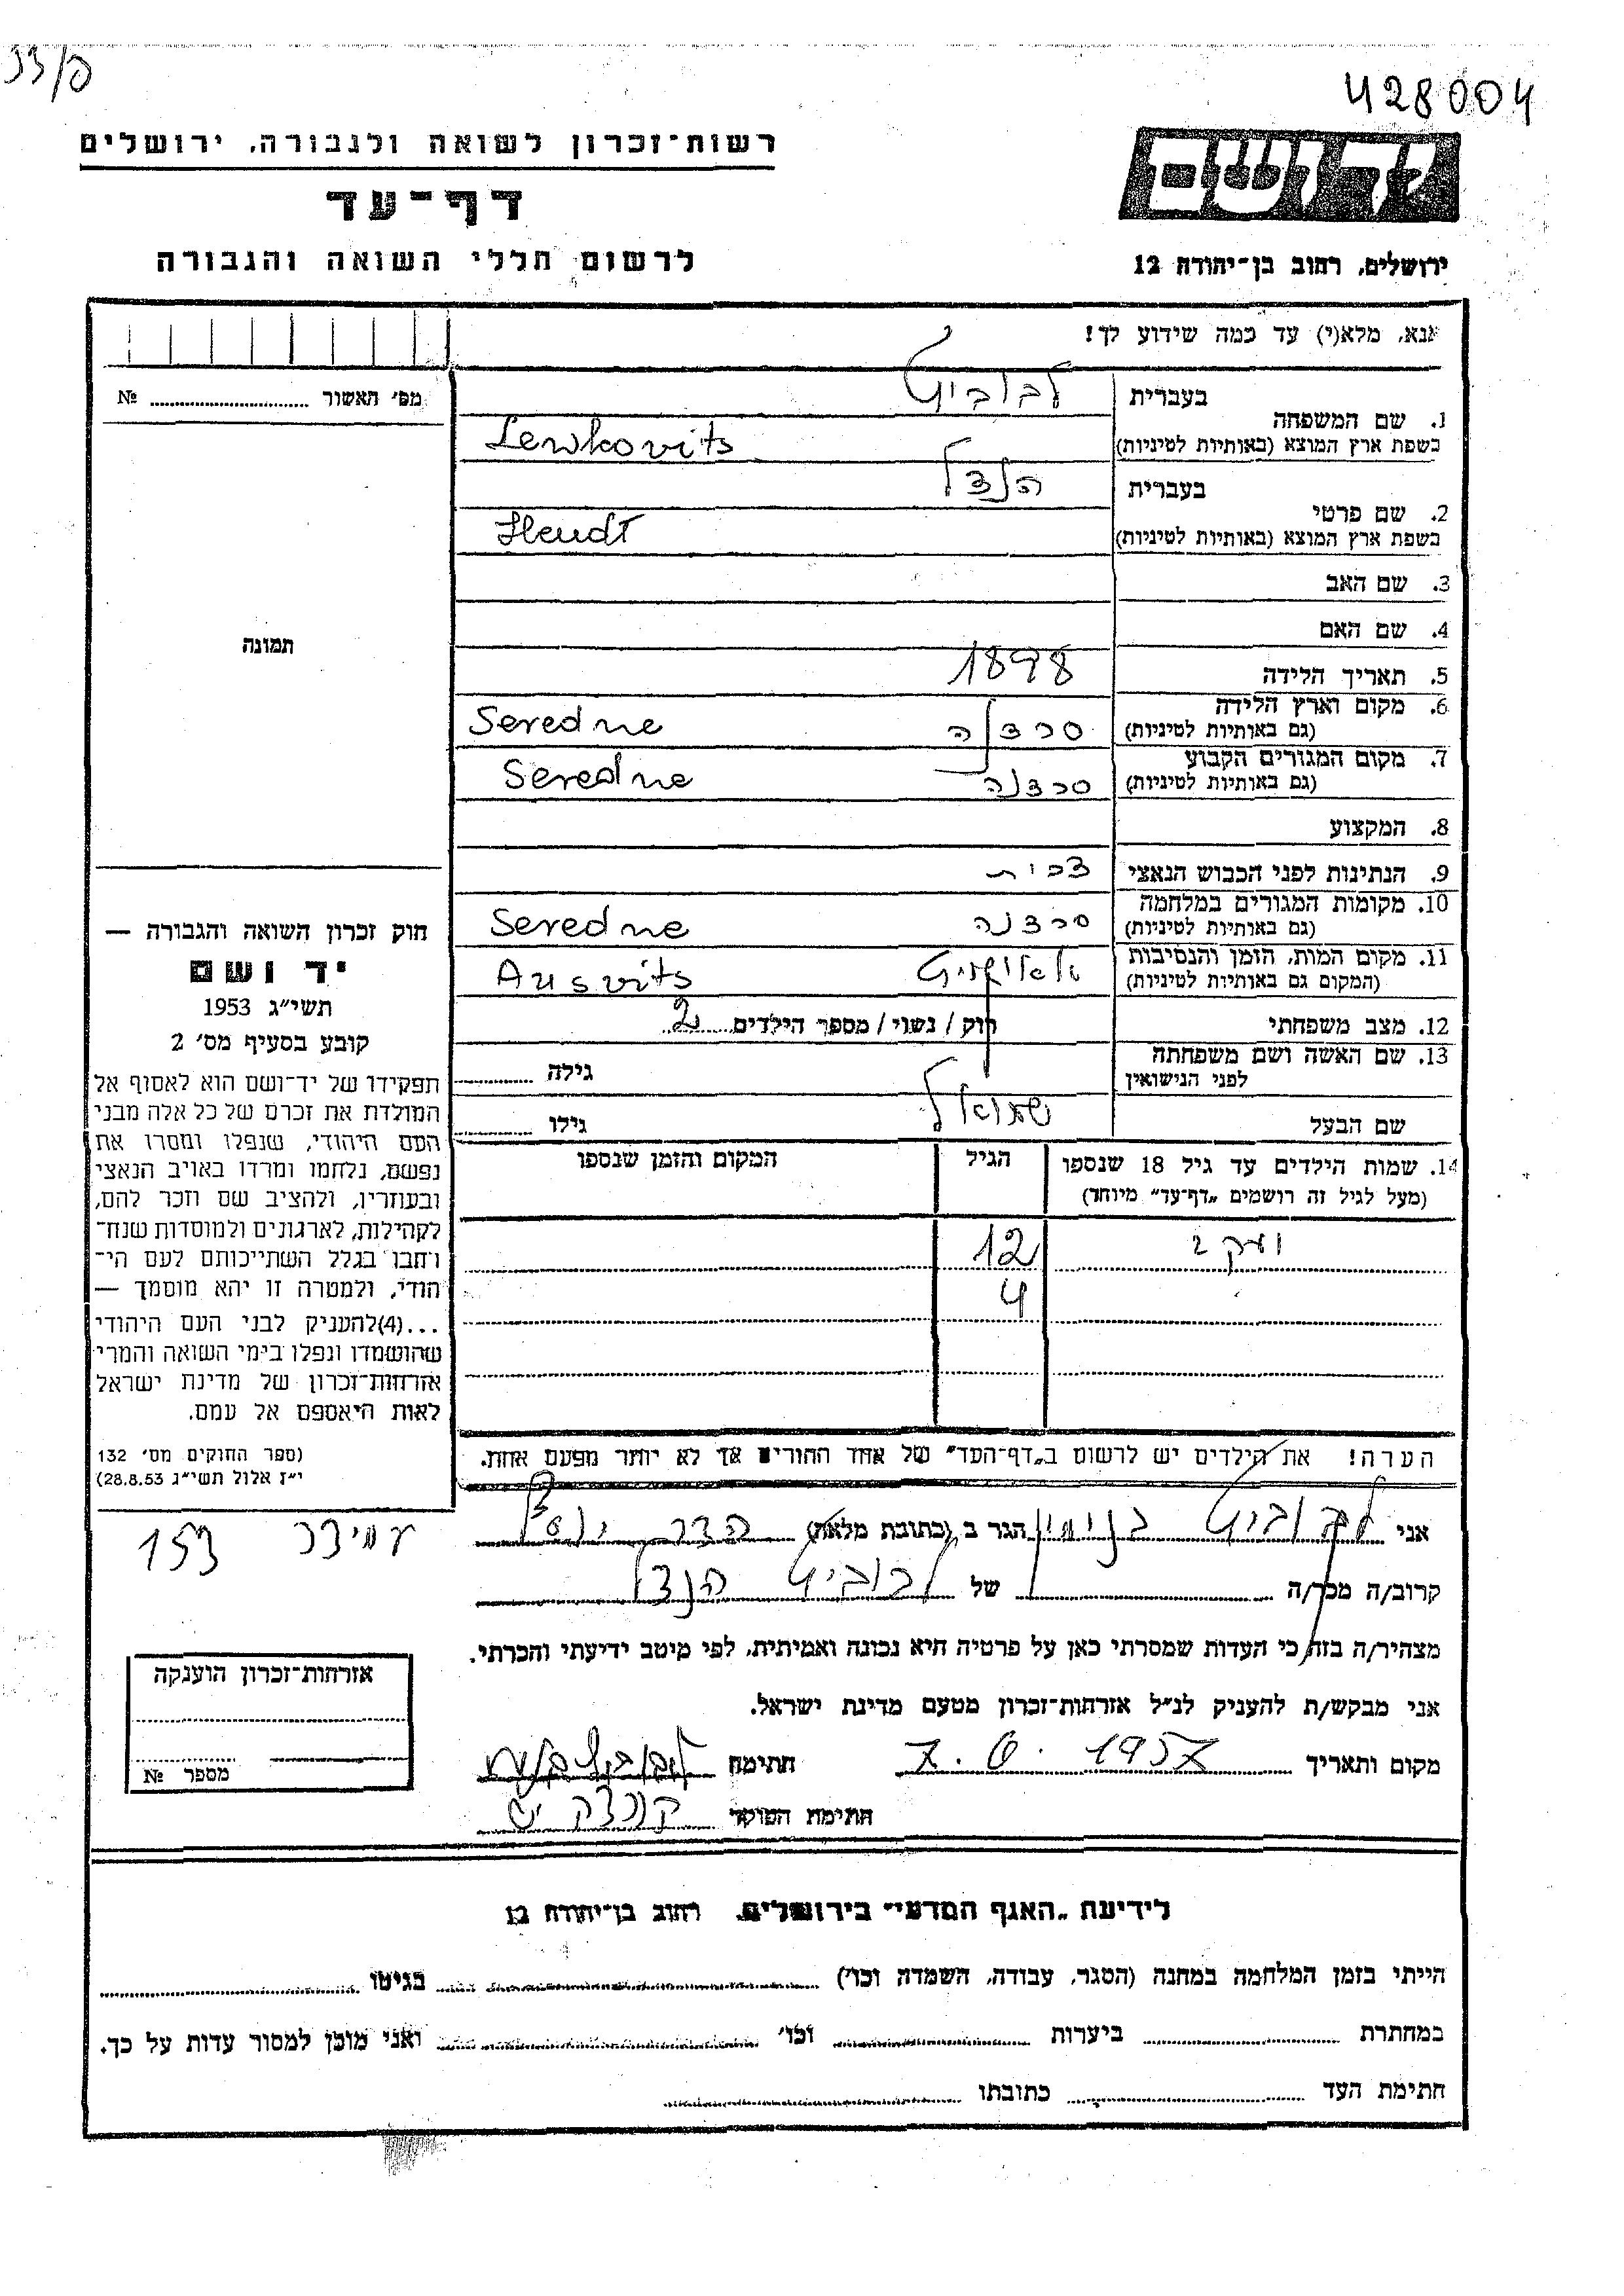 33/פ
428004
רשות־זכרון לשואה ולגבורה, ירושלים
דף־עד
לרשום חללי השואה והגבורה
יד ושם
ירושלים, רחוב בן־יהודה 12
אנא, מלא(י) עד כמה שידוע לך!
מס׳ תאשור № 
1. שם המשפחה
בעברית לבוביץ
בשפת ארץ המוצא (באותיות לטיניות) Lewkovits
2. שם פרטי
בעברית הנצל
בשפת ארץ המוצא (באותיות לטיניות) Hendl
3. שם האב
4. שם האם
5. תאריך הלידה 1898
6. מקום וארץ הלידה
(גם באותיות לטיניות) סרדנה Seredne
7. מקום המגורים הקבוע
(גם באותיות לטיניות) סרדנה Seredne
8. המקצוע
9. הנתינות לפני הכבוש הנאצי
10. מקומות המגורים במלחמה
(גם באותיות לטיניות) סרדנה Seredne
11. מקום המות, הזמן והנסיבות
(המקום גם באותיות לטיניות) Ausvits
12. מצב משפחתי רוק / נשוי / מספר הילדים 2
13. שם האשה ושם משפחתה
לפני הנישואין גילה
שם הבעל שמואל גילו
14. שמות הילדים עד גיל 18 שנספו הגיל המקום והזמן שנספו
(מעל לגיל זה רושמים „דף־עד” מיוחד)
12
4
הערה! את הילדים יש לרשום ב„דף־העד” של אחד ההורים אך לא יותר מפעם אחת.
תמונה
חוק זכרון השואה והגבורה —
יד ושם
תשי״ג 1953
קובע בסעיף מס׳ 2
תפקידו של יד־ושם הוא לאסוף אל
המולדת את זכרם של כל אלה מבני
העם היהודי, שנפלו ומסרו את
נפשם, נלחמו ומרדו באויב הנאצי
ובעוזריו, ולהציב שם וזכר להם,
לקהילות, לארגונים ולמוסדות שנח־
רחבו בגלל השתייכותם לעם הי־
הודי, ולמטרה זו יהא מוסמך —
...(4)להעניק לבני העם היהודי
שהושמדו ונפלו בימי השואה והמרי
אזרחות־זכרון של מדינת ישראל
לאות היאספם אל עמם.
(ספר החוקים מס׳ 132
י״ז אלול תשי״ג 28.8.53)
אני לבוביץ הגר ב (כתובת מלאה) הדר יוסף
עמידר 153
קרוב/ה מכר/ה של לבוביץ הנצל
מצהיר/ה בזה כי העדות שמסרתי כאן על פרטיה היא נכונה ואמיתית, לפי מיטב ידיעתי והכרתי.
אני מבקש/ת להעניק לנ״ל אזרחות־זכרון מטעם מדינת ישראל.
מקום ותאריך 7. 6. 1957 חתימה
חתימת הפוקד
אזרחות־זכרון הוענקה
מספר №
לידיעת „האגף המדעי” בירושלים, רחוב בן־יהודה 12
הייתי בזמן המלחמה במחנה (הסגר, עבודה, השמדה וכו׳) בגיטו
במחתרת ביערות וכו׳ ואני מוכן למסור עדות על כך.
חתימת העד כתובתו